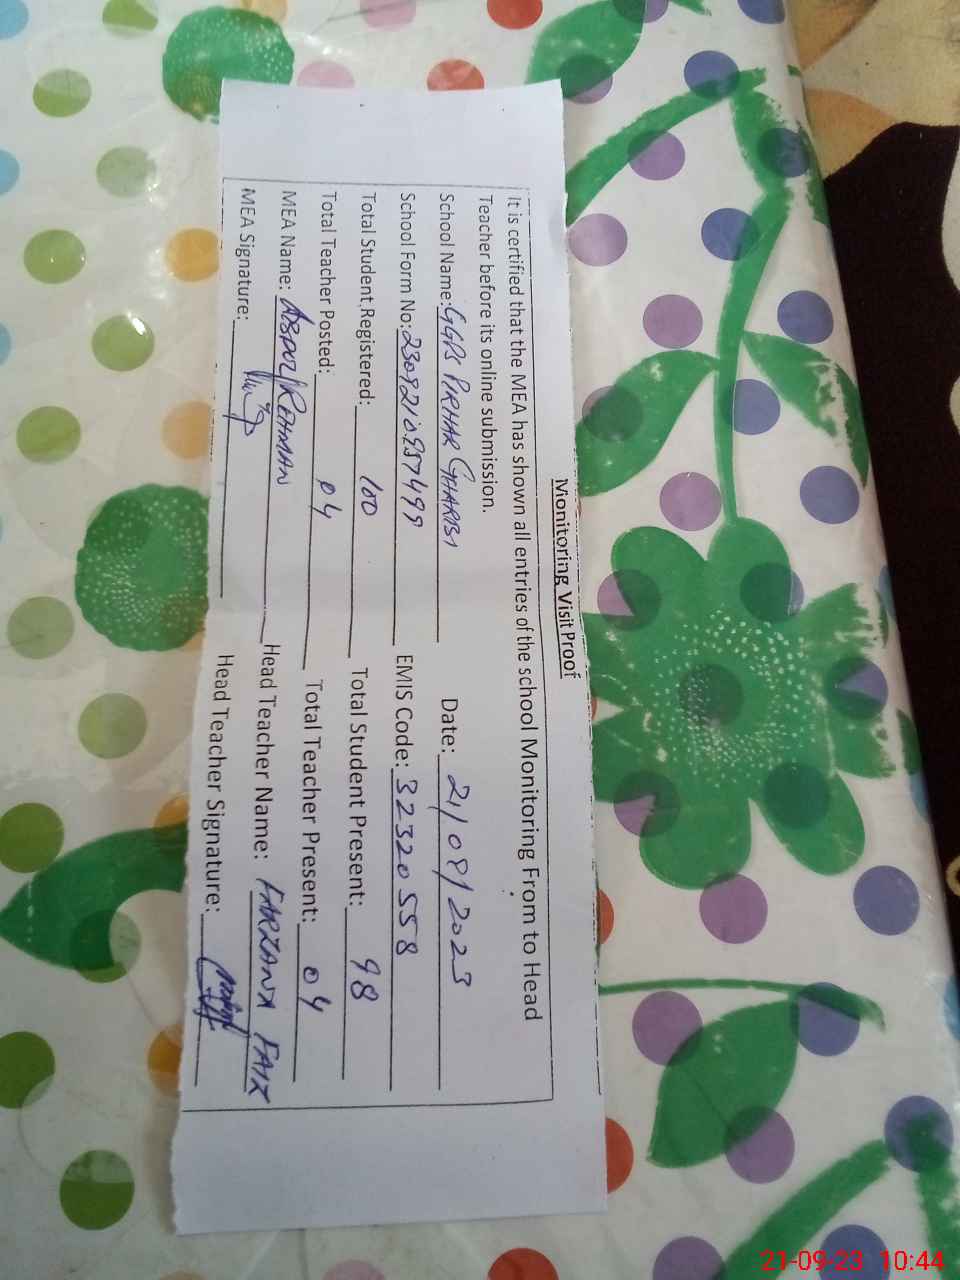 Monitoring Visit Proof
It is certified that the MEA has shown all entries of the school Monitoring From to Head
Teacher before its online submission.
School Name: GGPS PIRHAR GHARBI Date: 21/09/2023
School Form No: EMIS Code: 32320558
Total Student Registered: 100 Total Student Present: 98
Total Teacher Posted: 04 Total Teacher Present: 04
MEA Name: ABDUL REHMAN Head Teacher Name: FARZANA FAIZ
MEA Signature: Head Teacher Signature:
21-09-23 10:44